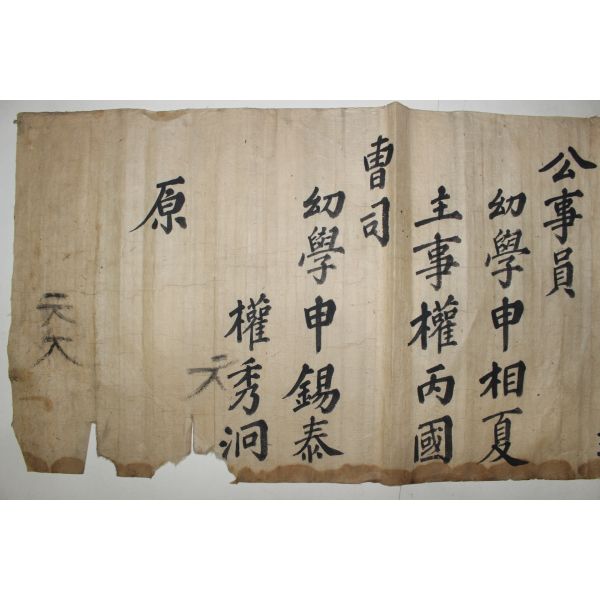 公事員
幼學申相夏
主事權丙國
曹司
幼學申錫泰
權秀泂
原